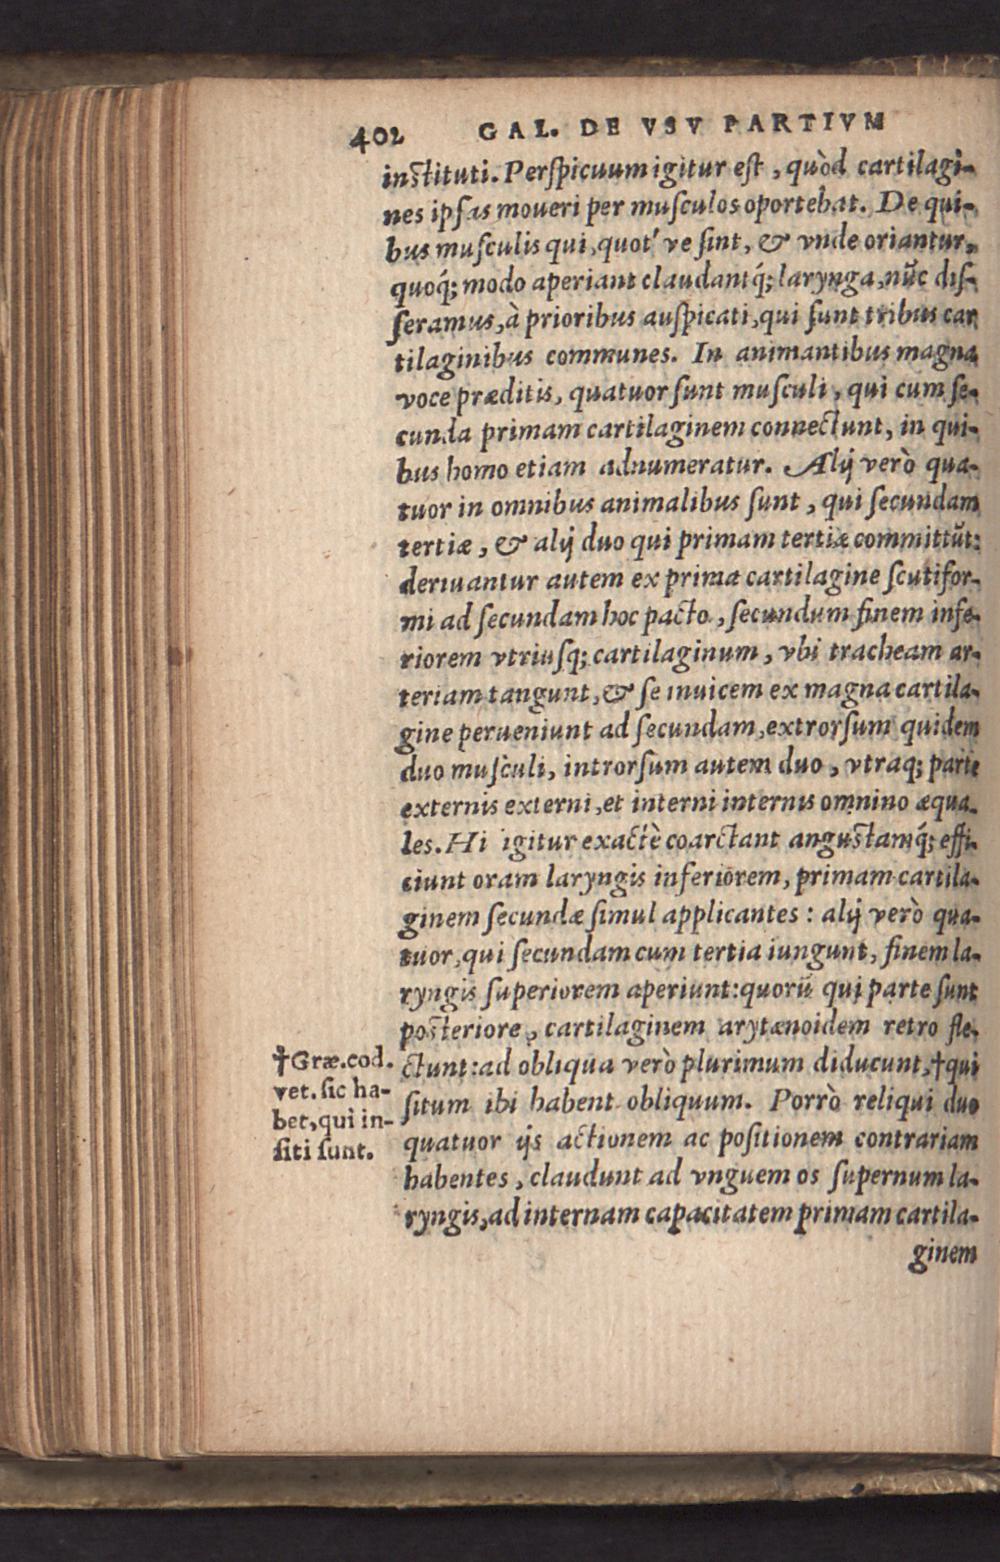 402 GAL. DE VSV PARTIVM
inſtituti. Perſpicuum igitur eſt, quòd cartilagi-
nes ipſas moueri per muſculos oportebat. De qui-
bus muſculis qui, quot' ve ſint, & vnde oriantur,
quoq́; modo aperiant claudantq́; larynga, nũc diſ-
ſeramus, à prioribus auſpicati, qui ſunt tribus car
tilaginibus communes. In animantibus magna
voce præditis, quatuor ſunt muſculi, qui cum ſe-
cunda primam cartilaginem connectunt, in qui-
bus homo etiam adnumeratur. Alij verò qua-
tuor in omnibus animalibus ſunt, qui ſecundam
tertiæ, & alij duo qui primam tertiæ committũt:
deriuantur autem ex prima cartilagine ſcutifor-
mi ad ſecundam hoc pacto, ſecundum finem infe-
riorem vtriuſq; cartilaginum, vbi tracheam ar-
teriam tangunt, & ſe inuicem ex magna cartila-
gine perueniunt ad ſecundam, extrorſum quidem
duo muſculi, introrſum autem duo, vtraq; parte
externis externi, et interni internis omnino æqua-
les. Hi igitur exactè coarctant anguſtamq́; effi-
ciunt oram laryngis inferiorem, primam cartila-
ginem ſecundæ ſimul applicantes: alij verò qua-
tuor, qui ſecundam cum tertia iungunt, finem la-
ryngis ſuperiorem aperiunt: quorũ qui parte ſunt
poſteriore, cartilaginem arytænoidem retro fle-
ctunt: ad obliqua verò plurimum diducunt, †qui
ſitum ibi habent obliquum. Porrò reliqui duo
quatuor ijs actionem ac poſitionem contrariam
habentes, claudunt ad vnguem os ſupernum la-
ryngis, ad internam capacitatem primam cartila-
ginem
†Græ. cod.
vet. ſic ha-
bet, qui in-
ſiti ſunt.